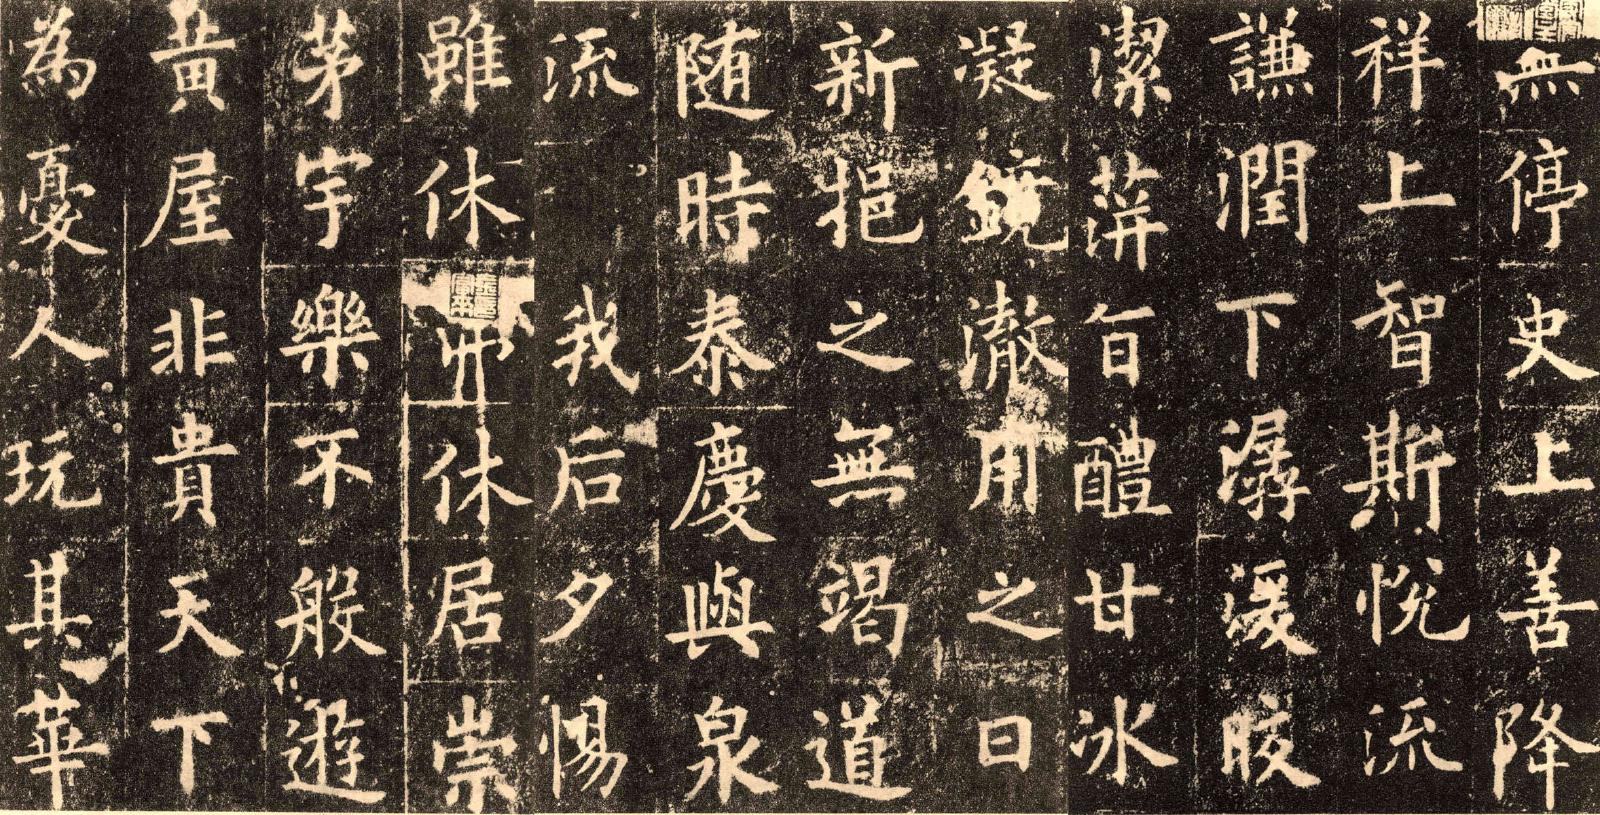 無停史上善降
祥上智斯悅流
謙潤下潺湲晈
潔蓱旨醴甘冰
凝鏡澈用之日
新挹之無竭道
随時泰慶與泉
流我后夕惕
雖休弗休居崇
茅宇樂不般遊
黄屋非貴天下
為憂人玩其華